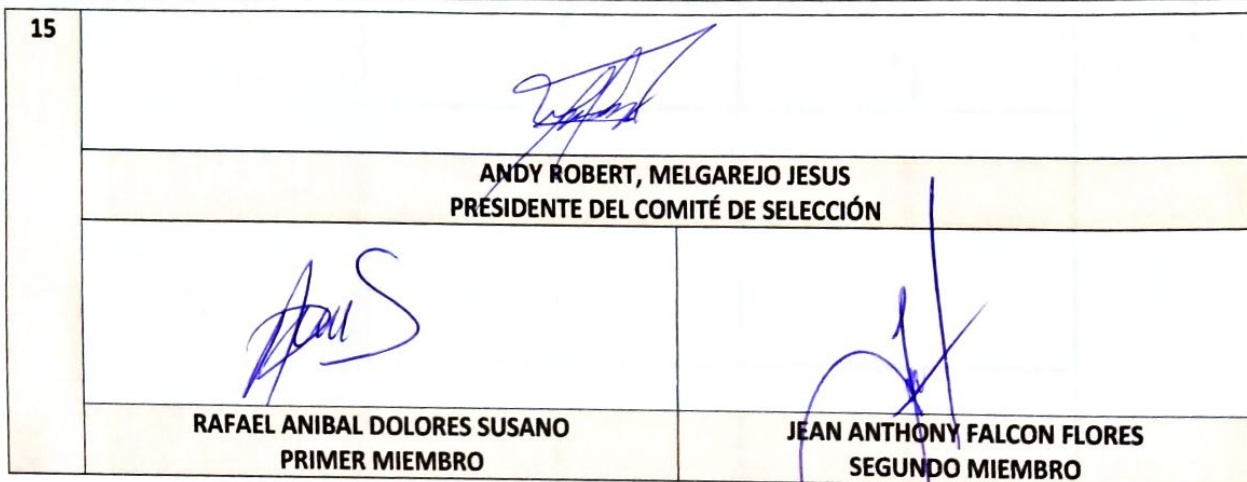 15
ANDY ROBERT, MELGAREJO JESUS
PRESIDENTE DEL COMITÉ DE SELECCIÓN
RAFAEL ANIBAL DOLORES SUSANO
PRIMER MIEMBRO
JEAN ANTHONY FALCON FLORES
SEGUNDO MIEMBRO